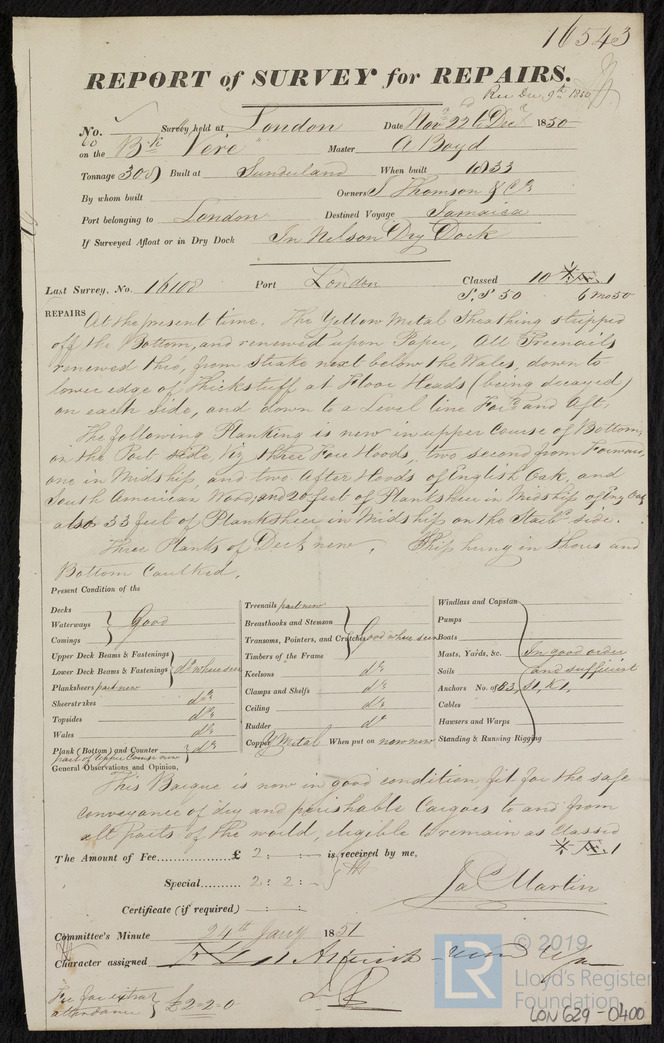 16543
REPORT of SURVEY for REPAIRS.
Rec Dec 9th 1850
No. Survey held at London Date Nov 22 to Dec 1850
on the Bk Vere Master A Boyd
Tonnage 308 Built at Sunderland When built 1833
By whom built Owners J Thomson & Co
Port belonging to London Destined Voyage Jamaica
If Surveyed Afloat or in Dry Dock In Nelson Dry Dock
Last Survey, No. 16108 Port London Classed 10 1
S.S 50 6 mo 50
REPAIRS At the present time. The Yellow Metal Sheathing stripped
off the Bottom, and renewed upon Paper, All Treenails
renewed thro', from Strake next below the Wales, down to
lower edge of Thickstuff at Floor Heads (being decayed)
on each Side, and down to a Level line For'd and Aft.
The following Planking is new in upper Course of Bottom,
on the Port side, Viz three Fore Hoods, two second from Forward,
one in Midship, and two After Hoods of English Oak, and
South American Wood, and 20 feet of Planksheer in Midship of Eng Oak
also 33 feet of Planksheer in Midship on the Starbd side.
Three Planks of Deck new, Ship hung in Shores and
Bottom Caulked.
Present Condition of the
Decks
Waterways Good
Comings
Upper Deck Beams & Fastenings
Lower Deck Beams & Fastenings do where seen
Planksheers part new
Sheerstrakes do
Topsides do
Wales do
Plank (Bottom) and Counter do
part of upper Course new
Treenails part new
Breasthooks and Stemson
Transoms, Pointers, and Crutches Good where seen
Timbers of the Frame
Keelsons do
Clamps and Shelfs do
Ceiling do
Rudder do
Copper Y Metal When put on now new
Windlass and Capstan
Pumps
Boats
Masts, Yards, &c. In good order
Sails and sufficient
Anchors No. of B3, S1, K1,
Cables
Hawsers and Warps
Standing & Running Rigging
General Observations and Opinion,
This Barque is now in good condition fit for the safe
conveyance of dry and perishable Cargoes to and from
all parts of the world, eligible to remain as Classed
1
The Amount of Fee......£ 2 : : – is received by me,
Special.......... 2 : 2 : –
Jas Martin
Certificate (if required) : :
Committee's Minute 24th Jany 1851
Character assigned
Fee for extra attendance £2-2-0
© 2019
LR
Lloyd's Register
Foundation
LON 629-0400